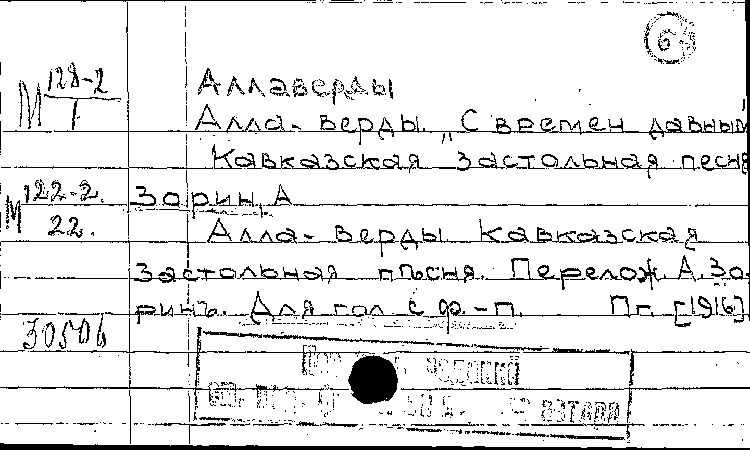 6
М 128-2
1
Аллаверды
Алла-верды. „С времен давным
Кавказская застольная песня
М 122-2.
22.
Зорин, А
Алла-верды Кавказская
застольная пѣсня. Перелож. А. Зо-
ринъ. Для гол с ф.-п. Пг. [1916]
30506